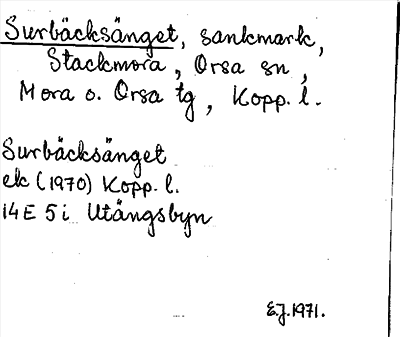 Surbäcksänget, sankmark,
Stackmora, Orsa sn,
Mora o. Orsa tg, Kopp. l.
Surbäcksänget
ek (1970) Kopp. l.
14E 5i Utängsbyn
E.J. 1971.